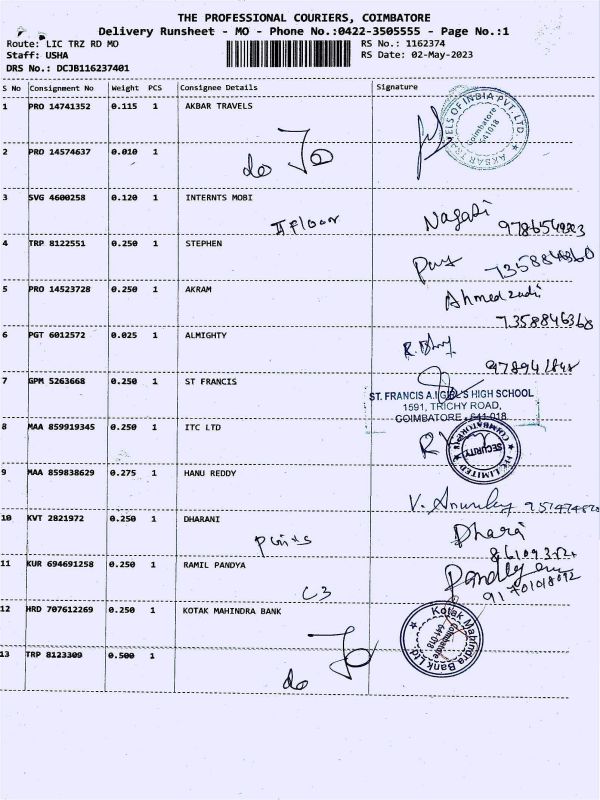 THE PROFESSIONAL COURIERS, COIMBATORE
Delivery Runsheet - MO - Phone No.:0422-3505555 - Page No.:1
Route: LIC TRZ RD MO
RS No.: 1162374
Staff: USHA
RS Date: 02-May-2023
DRS No.: DCJB116237401
S No Consignment No Weight PCS Consignee Details Signature
1 PRO 14741352 0.115 1 AKBAR TRAVELS
AKBAR TRAVELS OF INDIA PVT. LTD.
Coimbatore
641018
2 PRO 14574637 0.010 1
do
3 SVG 4600258 0.120 1 INTERNTS MOBI
II Floor
4 TRP 8122551 0.250 1 STEPHEN
5 PRO 14523728 0.250 1 AKRAM
7358846360
6 PGT 6012572 0.025 1 ALMIGHTY
7 GPM 5263668 0.250 1 ST FRANCIS
ST. FRANCIS A.I GIRL'S HIGH SCHOOL
1591, TRICHY ROAD,
COIMBATORE - 641 018
8 MAA 859919345 0.250 1 ITC LTD
SECURITY
9 MAA 859838629 0.275 1 HANU REDDY
10 KVT 2821972 0.250 1 DHARANI
11 KUR 694691258 0.250 1 RAMIL PANDYA
C3
12 HRD 707612269 0.250 1 KOTAK MAHINDRA BANK
Kotak Mahindra Bank Ltd.
Coimbatore
641-018
13 TRP 8123309 0.500 1
do